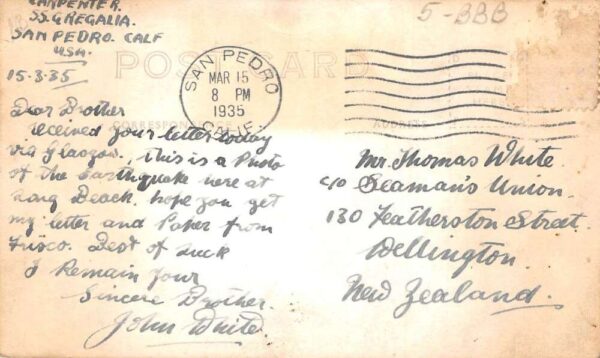 CARPENTER.
SS. GREGALIA.
SAN PEDRO. CALF
USA.
15-3-35
5-BBB
POST CARD
SAN PEDRO
MAR 15
8 PM
1935
CALIF.
CORRESPONDENCE
ADDRESS
Dear Brother
received your letter today
via Glasgow, this is a Photo
of the Earthquake here at
Long Beach. hope you get
my letter and Paper from
Frisco. Best of luck
I Remain your
Sincere Brother.
John White.
Mr. Thomas White.
c/o Seaman's Union.
130 Featherston Street.
Wellington.
New Zealand.